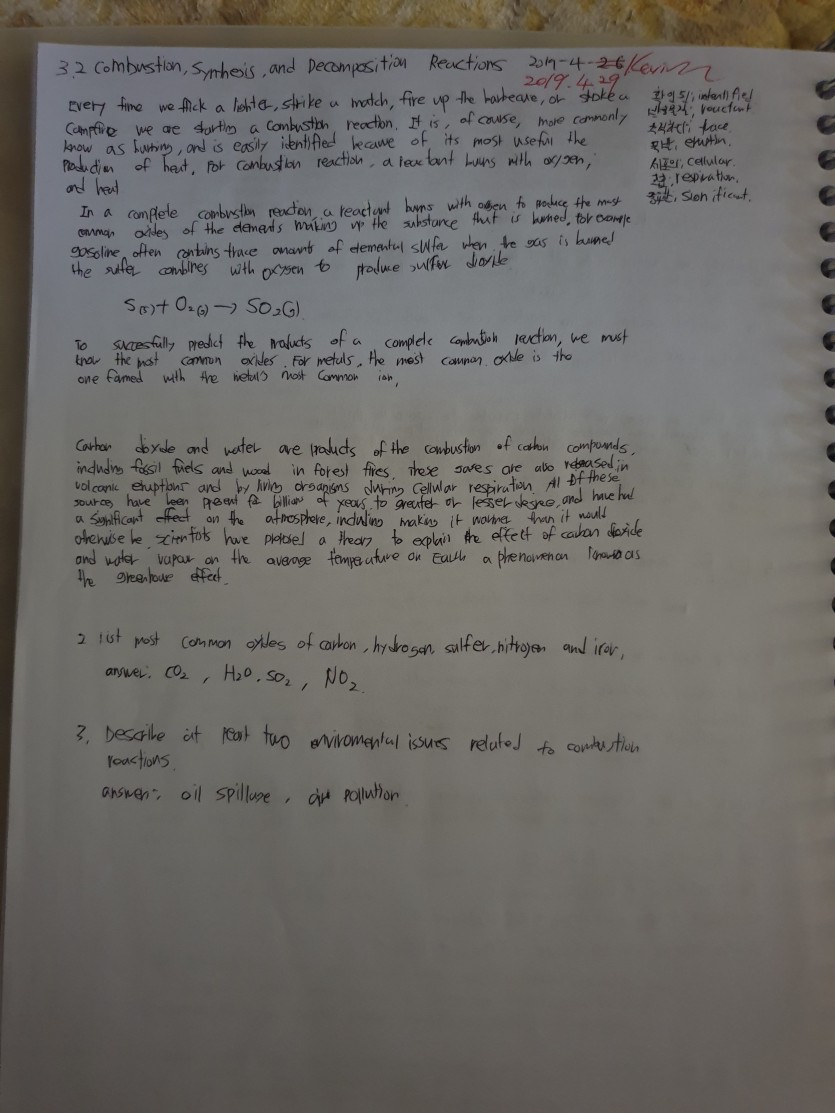 3.2 Combustion, Synthesis, and Decomposition Reactions 2019-4-26
2019.4.29 Kevin
Every time we flick a lighter, strike a match, fire up the barbecue, or stoke a
Campfire we are starting a Combustion reaction. It is, of course, more commonly
know as burning, and is easily identified because of its most useful the
Production of heat, for combustion reaction, a reactant burns with oxygen,
and heat
identified
reactant
trace
eruption.
세포의, Cellular.
respiration.
significant.
In a complete combustion reaction, a reactant burns with oxgen to produce the most
common oxides of the elements making up the substance that is burned, for example
gasoline often contains trace amounts of elemental sulfer when the gas is burned
the sulfer combines with oxygen to produce sulfur dioxide
S(s) + O2(g) → SO2(g)
To succesfully predict the products of a complete combustion reaction, we must
know the most common oxides. For metals, the most common oxide is the
one formed with the metal's most Common ion,
Carbon dioxide and water are products of the combustion of carbon compounds,
including fossil fuels and wood in forest fires. these gases are also released in
volcanic eruptions and by living organisms during Cellular respiration. All Of these
sources have been present for billion of years to greater or lesser degree, and have had
a significant effect on the atmosphere, including making it warmer than it would
otherwise be. scientists have proposed a theory to explain the effect of carbon dioxide
and water vapour on the average temperature on Earth a phenomenon known as
the greenhouse effect.
2 list most common oxides of carbon, hydrogen, sulfer, nitrogen and iron,
answer: CO2, H2O. SO2, NO2.
3. Describe at least two enviromental issues related to combustion
reactions.
answer: oil spillage, air pollution.